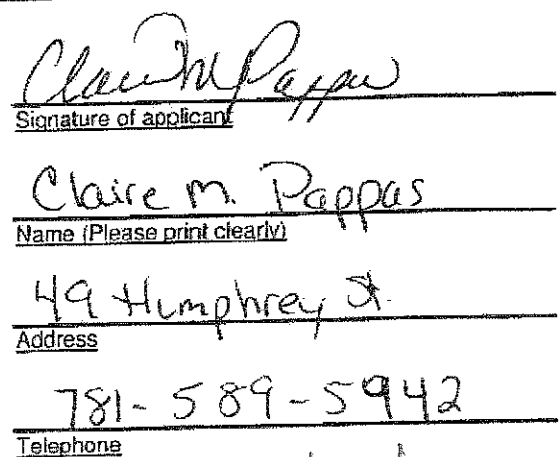 Claire M Pappas
Signature of applicant
Claire M. Pappas
Name (Please print clearly)
49 Humphrey St.
Address
781-589-5942
Telephone